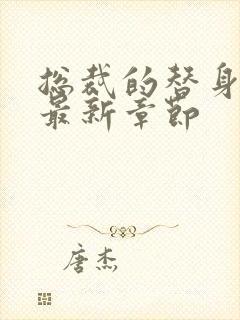 总裁的替身
最新章节
唐杰